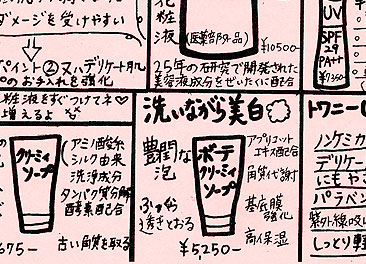 ダメージを受けやすい
ポイント②又ハデリケート肌
のお手入れを強化
化粧液
(医薬部外品)
¥10500
25年の研究で開発された
美容液成分をぜいたくに配合
UV
SPF
29
PA++
¥7350
粧液をすぐつけてネ♡
増えるよ
クリーミィ
ソープ
アミノ酸系
シルク由来
洗浄成分
タンパク質分解
酵素配合
675-
古い角質を取る
洗いながら美白
豊潤な
泡
ボーテ
クリーミィ
ソープ
透きとおる
¥5,250-
アプリコット
エキス配合
角質代謝
基底膜
強化
高保湿
トワニー
ノンケミカ
デリケー
にもやさ
パラベン
紫外線吸
しっとり軽